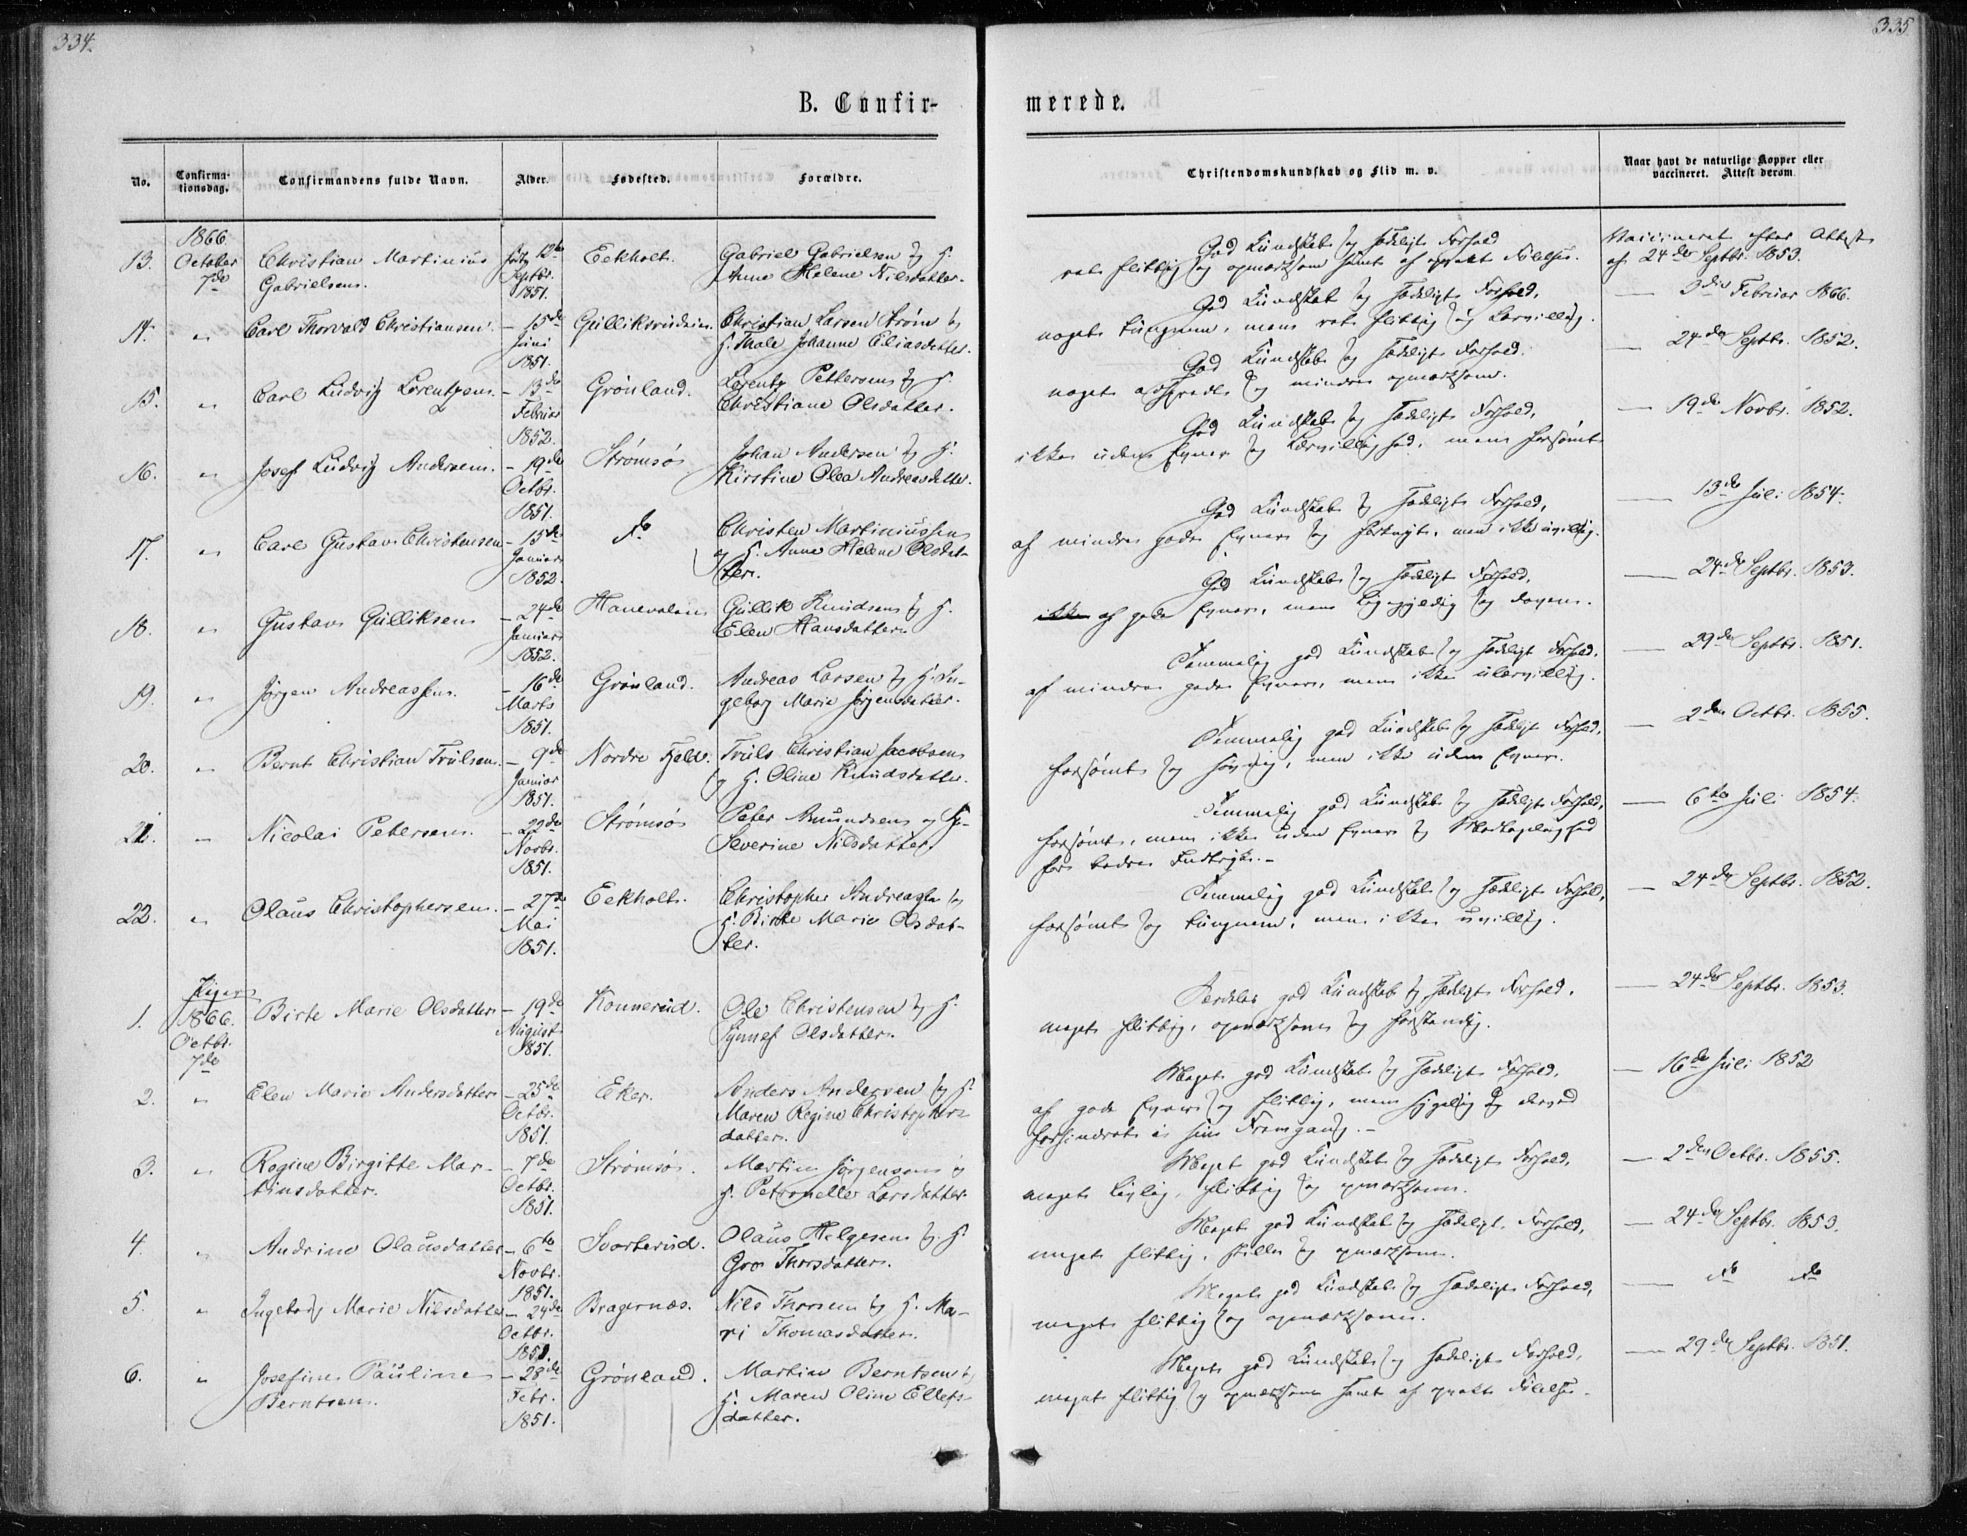 334.
335.
B. Confir-
merede.
No.
Confirma-
tionsdag.
Confirmandens fulde Navn.
Alder.
Fødested.
Forældre.
Christendomskundskab og Flid m. v.
Naar havt de naturlige Kopper eller
vaccineret. Attest derom
1866.
13. October Christian Martinius 12te Eekholt. Gabriel Gabrielsen og H. God Kundskab og sædeligt Forhold Vaccineret efter Attest
7de Gabrielsen. Septbr. Anne Helene Nilsdatter. og opmærksom samt af af 24de Septbr. 1853.
1851.
14. " Carl Thorvald Christiansen. – 15de Christian Larsen Strøm og God Kundskab og sædeligt Forhold, — Februar 1866.
Juni H. Thale Johanne Eliasdatter. noget tungnem, men ret flittig og lærvillig.
1851.
15. " Carl Ludvig Lorentzen. – 13de Grönland. Lorentz Pettersen og H. God Kundskab og sædeligt Forhold. — 24de Septbr. 1852.
Februar Christiane Olsdatter. noget adspredt og mindre opmærksom.
1852.
16. " Josef Ludvig Andersen. – 19de Strømsø Johan Andersen og H. God Kundskab og sædeligt Forhold, — 19de Novbr. 1852.
Octbr. Kirstine Olea Andreasdatter. ikke uden Evner og Lærvillighed, men forsømt
1851.
17. " Carl Gustav Christensen – 15de do Christen Martiniussen God Kundskab og sædeligt Forhold, — 13de Juli 1854.
Januar og H. Anne Helene Olsdat- af mindre gode Evner og men ikke uvillig.
1852. ter.
18. " Gustav Gulliksen – 24de Gullik Knudsen og H. God Kundskab og sædeligt Forhold, — 24de Septbr. 1853.
Januar Elen Hansdatter. ikke af gode Evner, men ligegyldig og doven.
1852.
19. " Jørgen Andreassen. – 16de Grönland. Andreas Larsen og H. In- Temmelig god Kundskab og sædeligt Forhold, — 29de Septbr. 1851.
Marts geborg Marie Jørgensdatter. af mindre gode Evner, men ikke ulærvillig.
1851.
20. " Bernt Christian Trulsen. – 9de Nordre Fjeld. Truls Christian Jacobsen Temmelig god Kundskab og sædeligt Forhold, — 2den Octbr. 1855.
Januar og H. Oline Knudsdatter. forsømt og men ikke uden Evner.
1851.
21. " Nicolai Petersen. – 22de Strømsø Peter Amundsen og H. Temmelig god Kundskab og sædeligt Forhold, — 6te Juli 1854.
Novbr. Severine Nilsdatter. forsømt, men ikke uden Evner og Modtagelighed
1851. for bedre Indtryk.–
22. " Olaus Christophersen. – 27de Eekholt. Christopher og Temmelig god Kundskab og sædeligt Forhold, — 24de Septbr. 1852.
Mai H. Birthe Marie Olsdat- forsømt og tungnem, men ikke uvillig.
1851. ter.
Piger
1. 1866. Birte Marie Olsdatter – 19de Konnerud. Ole Christensen og H. Særdeles god Kundskab og sædeligt Forhold, — 24de Septbr. 1853.
Octbr. August Synnef Olsdatter. meget flittig, opmærksom og forstandig.
7de 1851.
2. " Elen Marie Andersdatter – 25de Eker. Anders Andersen og H. Meget god Kundskab og sædeligt Forhold, — 16de Juli 1852
Octbr. Maren Regine Christophers af gode Evner og flittig, men sygelig og derved
1851. datter. forhindret i sin Fremgang.–
3. " Regine Birgitte Mar- – 7de Strømsø. Martin Jørgensen og Meget god Kundskab og sædeligt Forhold, — 2den Octbr. 1855.
tinsdatter. Octbr. H. Petronelle Larsdatter. meget flittig og opmærksom.
1851.
4. " Andrine Olausdatter – 6te Svarterud. Olaus Helgesen og H. Meget god Kundskab og sædeligt Forhold, — 24de Septbr. 1853.
Novbr. Gro Thorsdatter. meget flittig, stille og opmærksom.
1851.
5. " Ingeborg Marie Nilsdatter – 24de Bragernæs. Nils Thorsen og H. Ma- Meget god Kundskab og sædeligt Forhold, — do do
Octbr. ri Thomasdatter. meget flittig og opmærksom.
1851.
6. " Josefine Pauline – 28de Grønland. Martin Berntsen og Meget god Kundskab og sædeligt Forhold, — 29de Septbr. 1851.
Berntsen. Febr. H. Maren Oline Ellefs- meget flittig og opmærksom samt af
1851. datter.